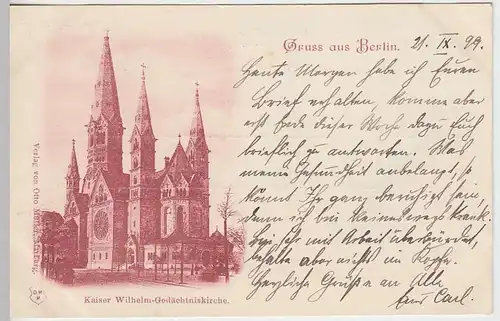 Gruss aus Berlin. 21. IX. 99.
Heute Morgen habe ich Euren
Brief erhalten, komme aber
erst Ende dieser Woche dazu Euch
brieflich zu antworten. Was
meine Gesundheit anbelangt, so
könnt Ihr ganz beruhigt sein,
denn ich bin keineswegs krank.
Bin stets mit Arbeit überbürdet,
behalte aber nichts im Kopfe.
Herzliche Grüße an Alle
Euer Carl.
Verlag von Otto
Kaiser Wilhelm-Gedächtniskirche.